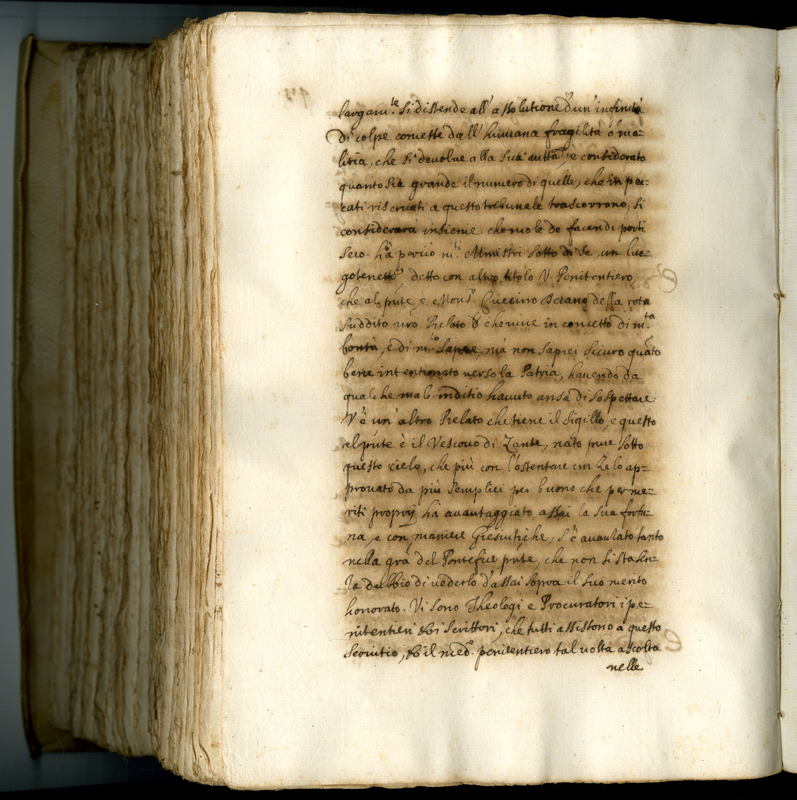 largam.te si distende all'assolutione d'un'infinità
di colpe comesse dall'humana fragilità ò ma-
litia, che si devolve alla sua autt.à è considerato
quanto sia grande il numero di quelle, che in pec-
cati riseruati a questo tribunale trascorrono, si
considerarà insieme che mole de facende porti
seco. hà perciò m.ti Ministri sotto di se, un luo-
gotenette detto con altro titolo V. Penitentiero,
che al pńte è Mons.r Cuccino Decano della rota
suddito uro Prelato che viue in concetto di m.ta
bontà, e di m.to sapere, mà non saprei sicuro quãto
bene intentionato verso la Patria, hauendo da
qualche malo inditio hauuto ansa di sospettare
V'è un'altro Prelato che tiene il sigillo, e questo
al pńte è il Vescouo di Zante, nato pure sotto
questo cielo, che più con l'ostentare un zelo ap-
prouato da più semplici per buono che per me-
riti proprij hà auantaggiato assai la sua fortu-
na, e con maniere Giesuitiche, s'è auanzato tanto
nella grã del Pontefice pńte, che non si sta sen-
za dubbio di uederlo d'assai sopra il suo merito
honorato. Vi sono Theologi e Procuratori i pe-
nitentieri & i scrittori, che tutti assistono a questo
seruitio, & il med.o penitentiero tal uolta ascolta
nelle